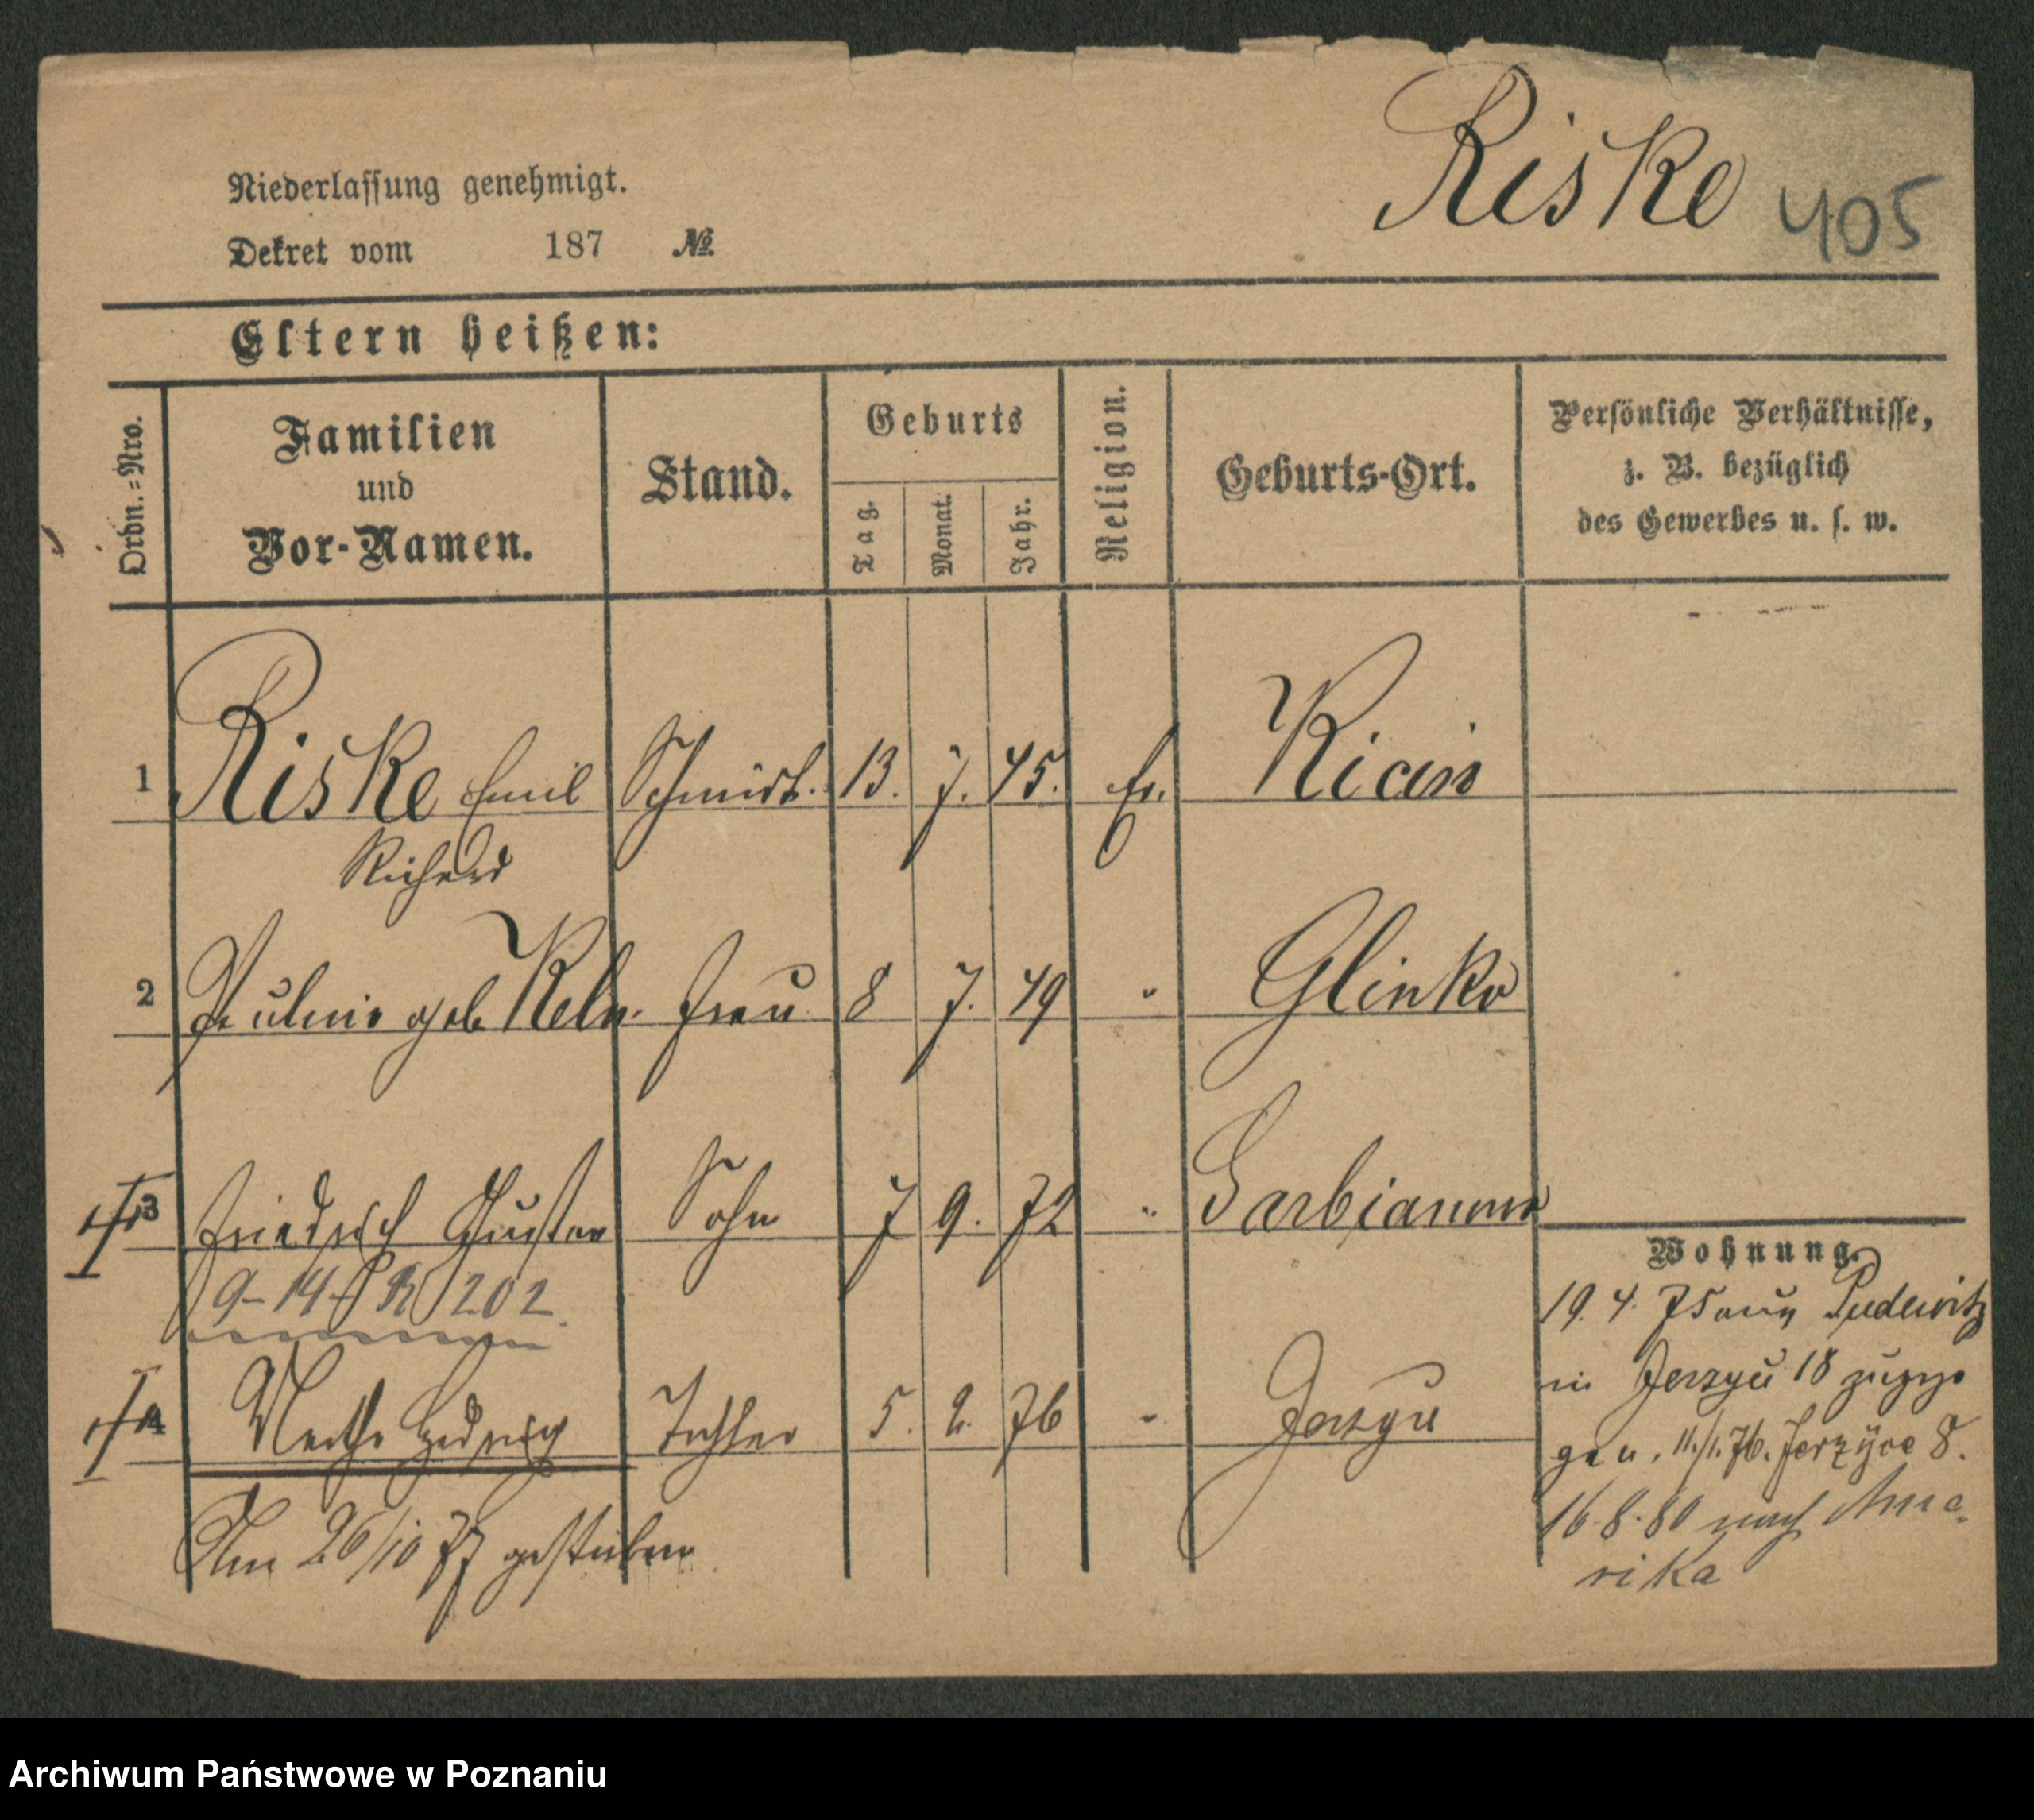 Riske 405
Niederlassung genehmigt.
Dekret vom 187 №
Eltern heißen:
Ordn.-Nro.
Familien
und
Vor-Namen.
Stand.
Geburts
Tag.
Monat.
Jahr.
Religion.
Geburts-Ort.
Persönliche Verhältnisse,
z. B. bezüglich
des Gewerbes u. s. w.
1 Riske Emil Schmidt. 13. 7. 45. Ev. Kicin
Richard
2 Pauline geb. Keln. Frau 8 7. 49 " Glinko
3 Friedrich Gustav Sohn 7 9. 72 "
9-14- R 202.
4 Martha Hedwig Tochter 5. 2. 76 " Jerzyce
Am 26/10 77 gestorben
Wohnung.
19. 4. 75 aus Pudewitz
in Jerzyce 18 zugezo
gen. 11./1. 76. Jerzyce 8.
16.8.80 nach Ame
rika
Archiwum Państwowe w Poznaniu